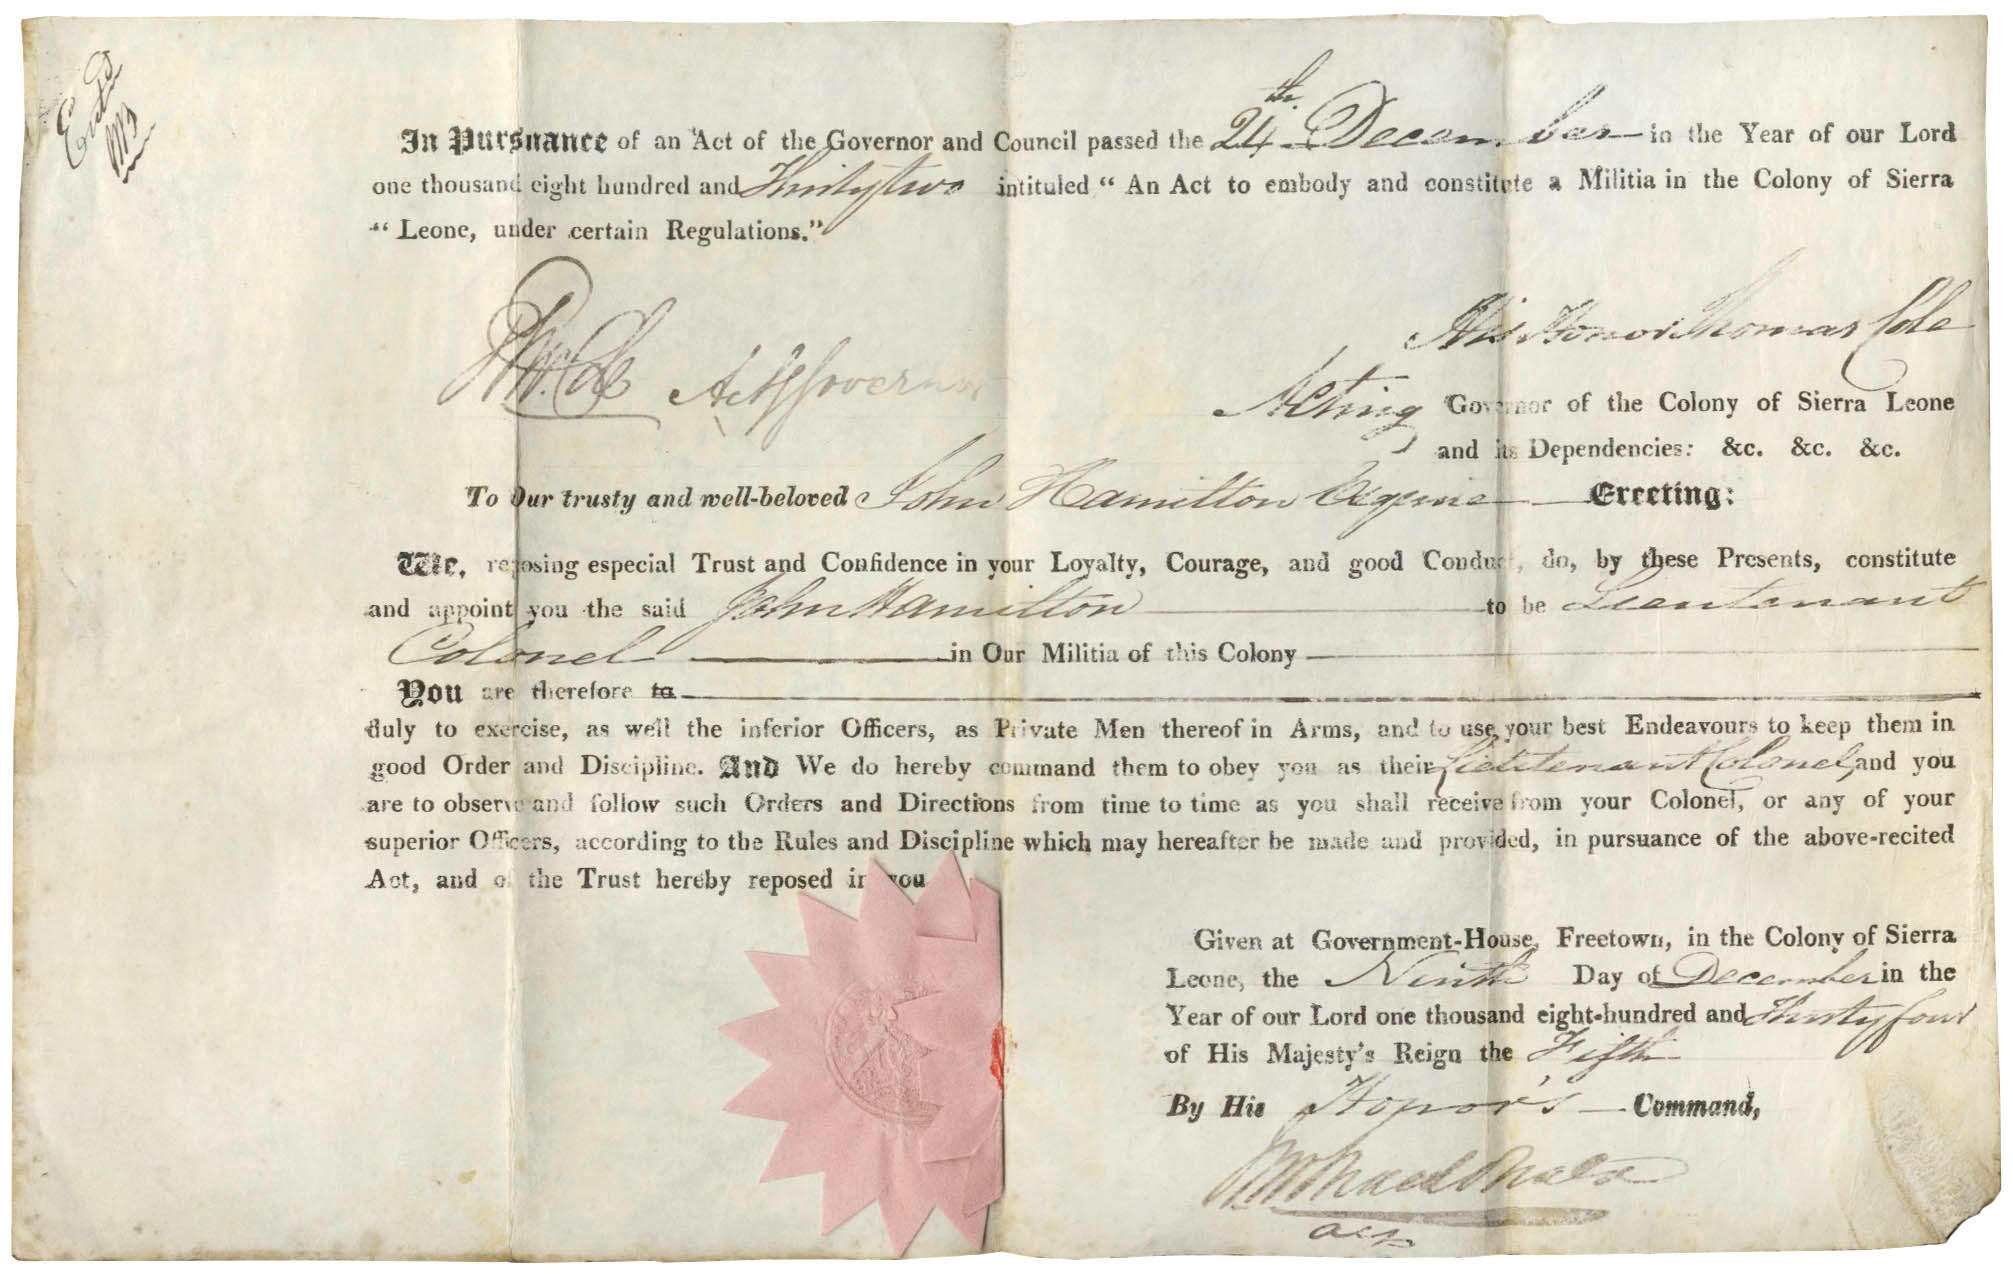 Entd
In Pursuance of an Act of the Governor and Council passed the 24th December in the Year of our Lord
one thousand eight hundred and Thirty two intituled “ An Act to embody and constitute a Militia in the Colony of Sierra
“ Leone, under certain Regulations.”
His Honor Thomas Cole
Actg Governor
Acting Governor of the Colony of Sierra Leone
and its Dependencies: &c. &c. &c.
To Our trusty and well-beloved John Hamilton Esquire Greeting:
We, reposing especial Trust and Confidence in your Loyalty, Courage, and good Conduct, do, by these Presents, constitute
and appoint you the said John Hamilton to be Lieutenant
Colonel in Our Militia of this Colony
You are therefore to
duly to exercise, as well the inferior Officers, as Private Men thereof in Arms, and to use your best Endeavours to keep them in
good Order and Discipline. And We do hereby command them to obey you as their Lieutenant Colonel, and you
are to observe and follow such Orders and Directions from time to time as you shall receive from your Colonel, or any of your
superior Officers, according to the Rules and Discipline which may hereafter be made and provided, in pursuance of the above-recited
Act, and of the Trust hereby reposed in you
Given at Government-House, Freetown, in the Colony of Sierra
Leone, the Ninth Day of December in the
Year of our Lord one thousand eight-hundred and Thirty four
of His Majesty's Reign the Fifth
By His Honor's Command,